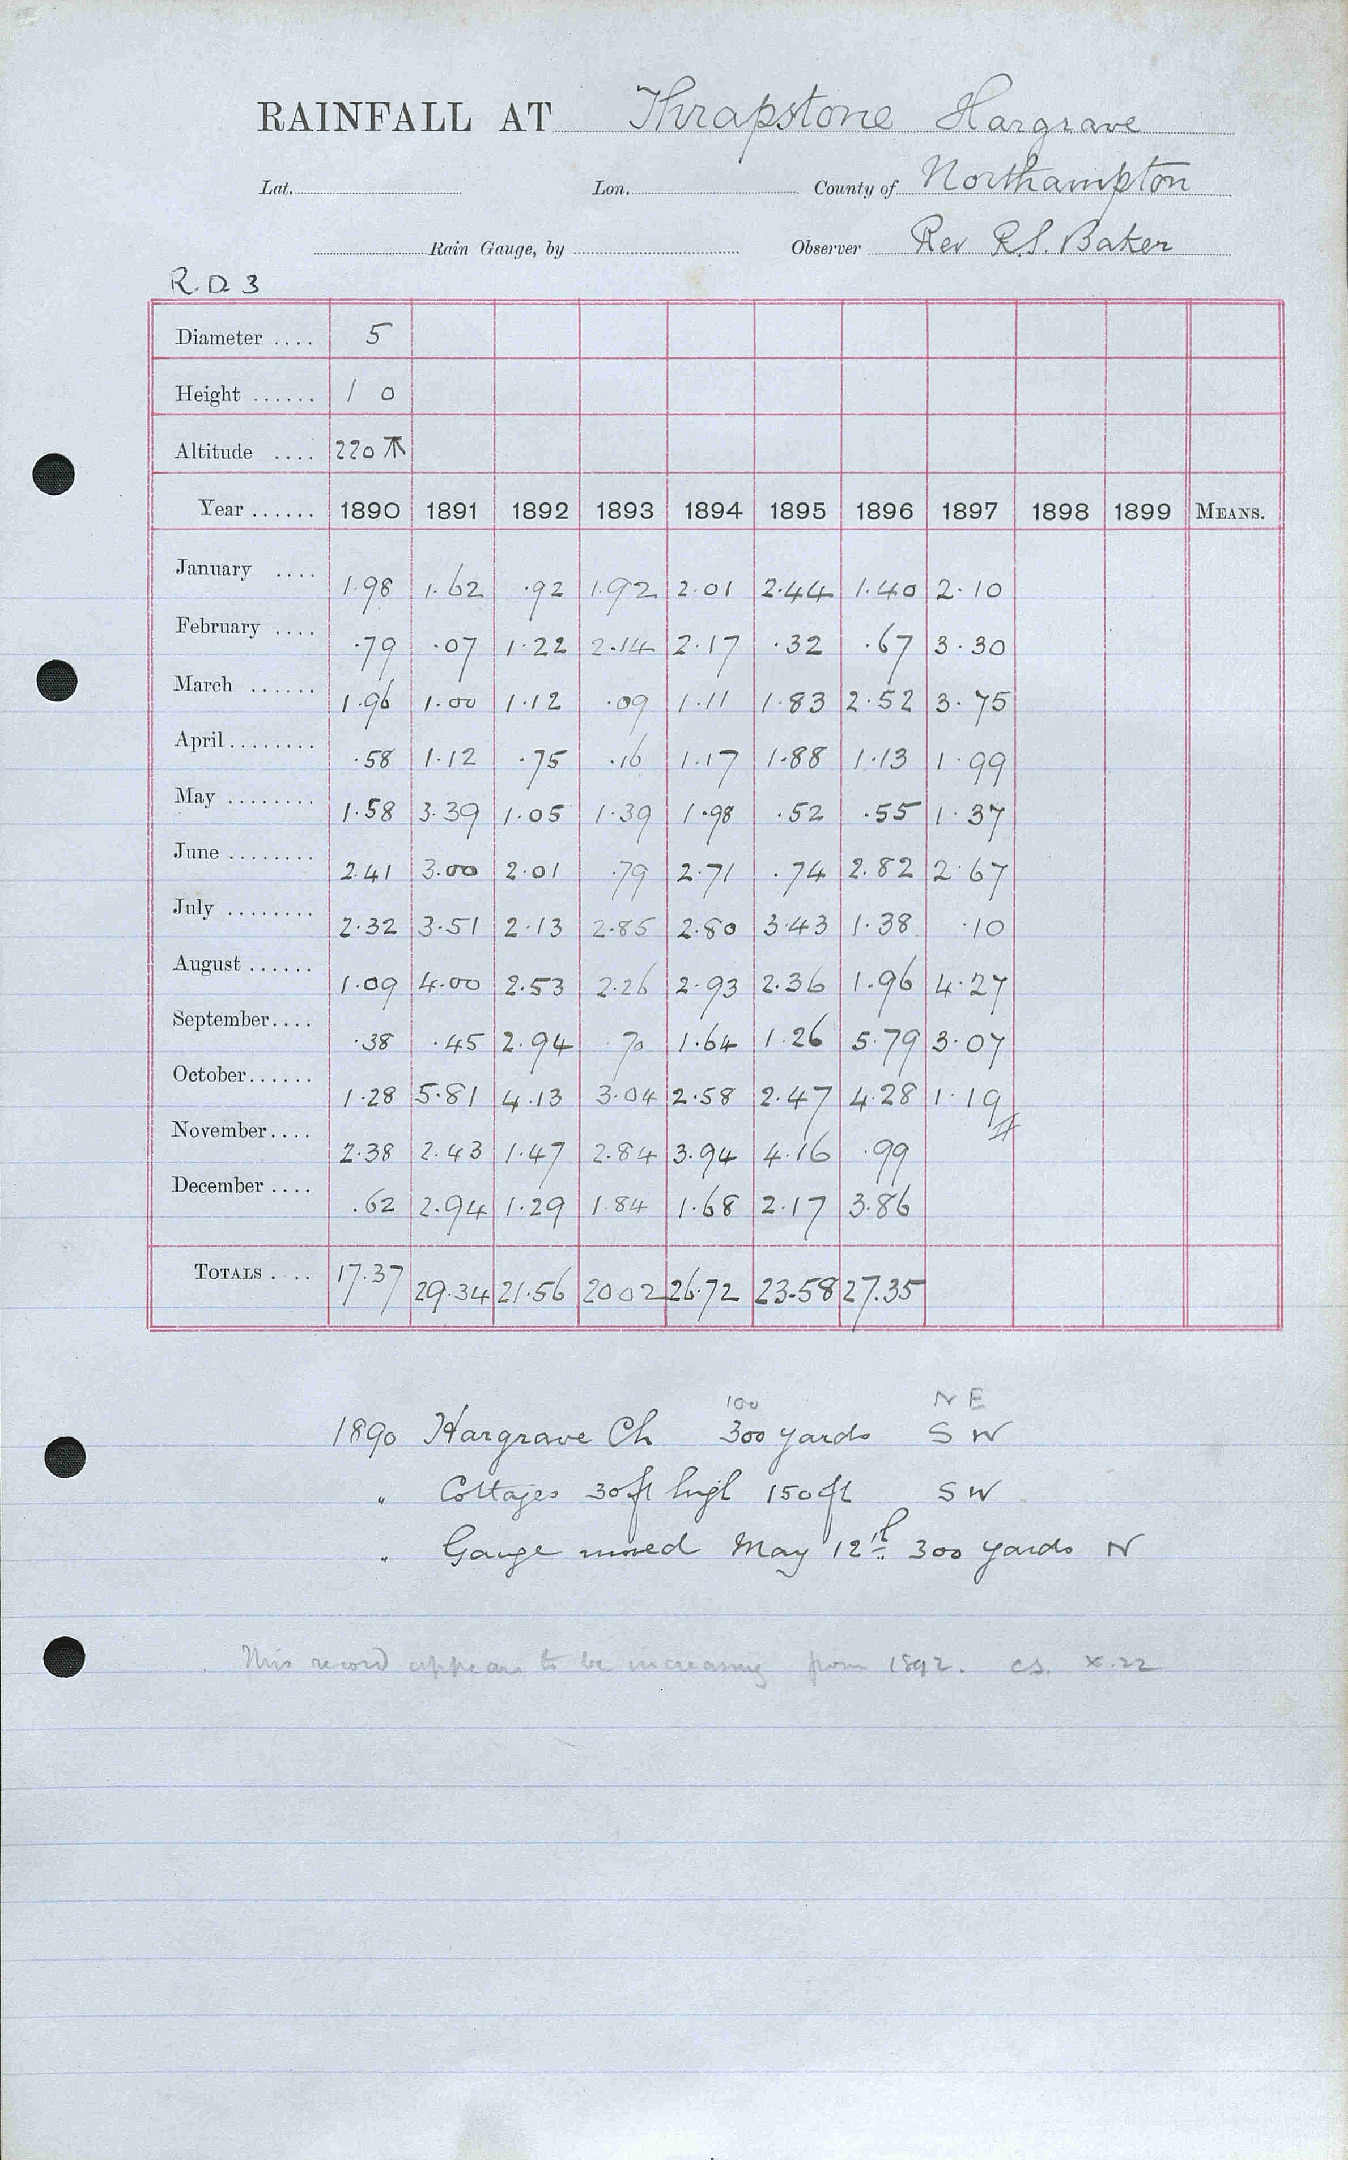 RAINFALL AT Thrapstone Hargrave
Lat. Lon. County of Northampton
Rain Gauge, by Observer Rev R.S. Baker
R.D. 3
Diameter .... 5
Height ...... 1 0
Altitude .... 220 ⚻
Year ...... 1890 1891 1892 1893 1894 1895 1896 1897 1898 1899 MEANS.
January .... 1.98 1.62 .92 1.92 2.01 2.44 1.40 2.10
February .... .79 .07 1.22 2.14 2.17 .32 .67 3.30
March ...... 1.96 1.00 1.12 .09 1.11 1.83 2.52 3.75
April ........ .58 1.12 .75 .16 1.17 1.88 1.13 1.99
May ........ 1.58 3.39 1.05 1.39 1.98 .52 .55 1.37
June ........ 2.41 3.00 2.01 .79 2.71 .74 2.82 2.67
July ........ 2.32 3.51 2.13 2.85 2.80 3.43 1.38 .10
August ...... 1.09 4.00 2.53 2.26 2.93 2.36 1.96 4.27
September.... .38 .45 2.94 .70 1.64 1.26 5.79 3.07
October...... 1.28 5.81 4.13 3.04 2.58 2.47 4.28 1.19
November.... 2.38 2.43 1.47 2.84 3.94 4.16 .99
December .... .62 2.94 1.29 1.84 1.68 2.17 3.86
TOTALS .... 17.37 29.34 21.56 20 02 26.72 23.58 27.35
100 N E
1890 Hargrave Ch 300 yards S W
" Cottages 30ft high 150ft S W
" Gauge moved May 12th 300 yards N
This record appears to be increasing from 1892. cs. X.22